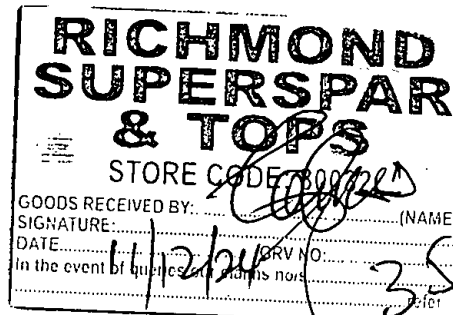 RICHMOND
SUPERSPAR
& TOPS
STORE CODE
GOODS RECEIVED BY:............(NAME
SIGNATURE:............
DATE............GRV NO:............
11/12/24
In the event of queries
refer